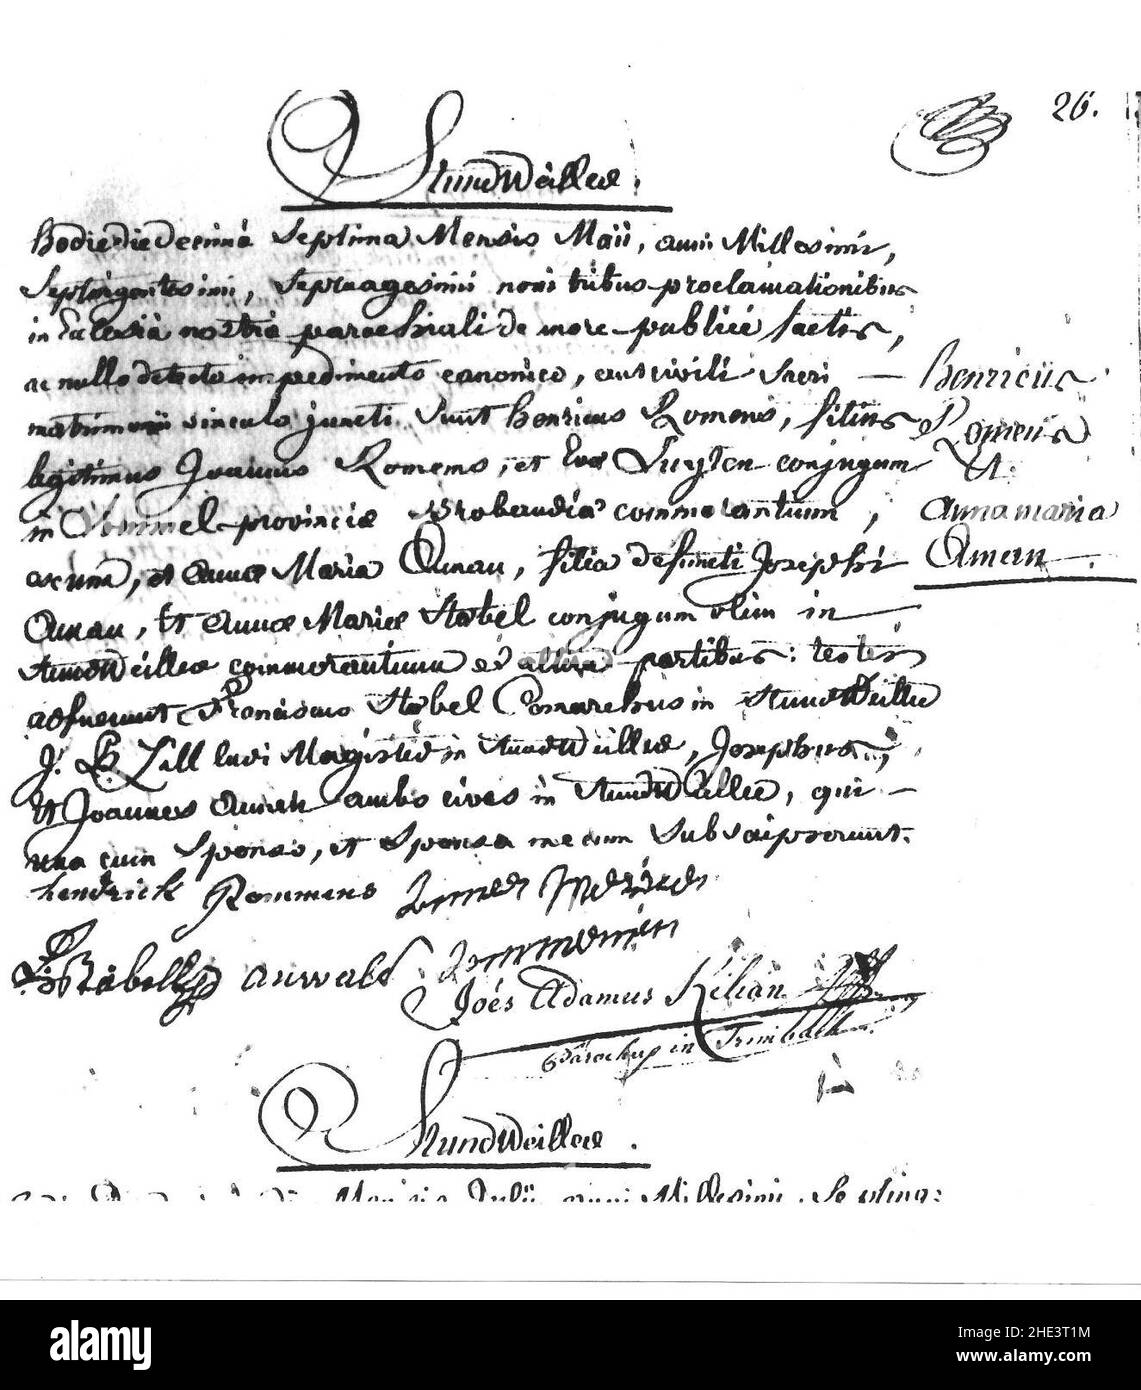 26.
Stundweiller.
hodie die decimâ Septima Mensis Maii, anni Millesimi,
Septingentesimi, Septuagesimi noni tribus proclamationibus
in Ecclesiâ nostrâ parochiali de more publicè factis,
ac nullo detecto impedimento canonico, aut civili Sacri —
matrimonii vinculo juncti Sunt henricus Romens, filius
legitimus Joannis Romens, et Evæ Luyten conjugum
in Sommel provinciæ Brabandiæ commorantium,
ex unâ, et Anna Maria Aunau, filia defuncti Josephi
Aunau, et Annæ Mariæ Stabel conjugum olim in
Stundweillee commorantium ex alterâ partibus: testes
adfuerunt Franciscus Stabel in Stundweillee
J. Zill ludi Magister in Stundweillee, Josephus,
et Joannes ambo cives in Stundweillee, qui —
una cum Sponso, et Sponsa mecum Subscripserunt.
henricus
Romens
et.
anna maria
Aman.
hendrick Rommens
Stabell anwald
Joés Adamus Kilian
Parochus in Trimbach
Stundweillee.
Mensis Julii anni Millesimi, Septin:
alamy
Image ID: 2HE3T1M
www.alamy.com